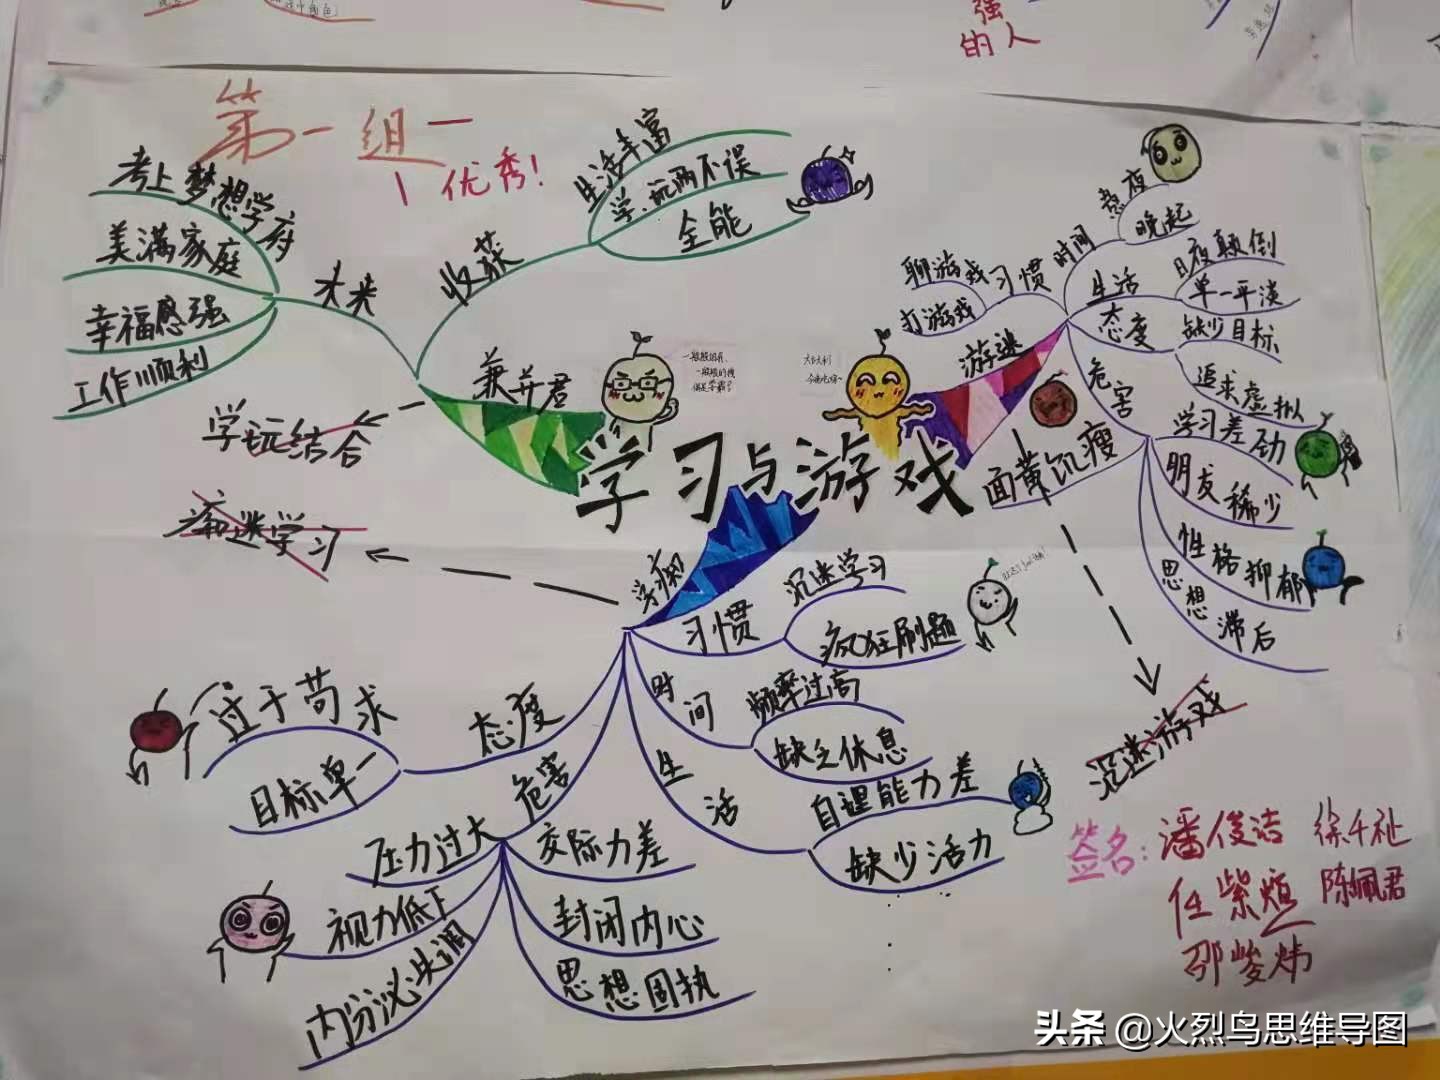 强
的人
第一组
优秀！
考上梦想学府
美满家庭
幸福感强
工作顺利
未来
收获
生活丰富
学、玩两不误
全能
兼并君
学玩结合
学习与游戏
游迷
习惯
聊游戏
打游戏
时间
熬夜
晚起
生活
日夜颠倒
单一平淡
态度
缺少目标
追求虚拟
危害
学习差劲
朋友稀少
性格抑郁
思想滞后
面黄沉瘦
沉迷游戏
学痴
沉迷学习
习惯
沉迷学习
疯狂刷题
时间
频率过高
缺乏休息
生活
自理能力差
缺少活力
态度
过于苟求
目标单一
危害
压力过大
视力低下
内分泌失调
交际力差
封闭内心
思想固执
签名:潘俊洁 徐千祉
任紫煊 陈佩君
邵峻炜
头条 @火烈鸟思维导图